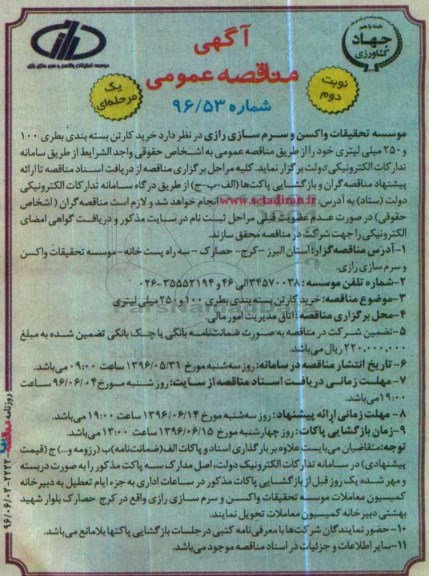 آگهی
مناقصه عمومی
شماره ۹۶/۵۳
جهاد
کشاورزی
نوبت
دوم
یک
مرحله‌ای
موسسه تحقیقات واکسن و سرم سازی رازی در نظر دارد خرید کارتن بسته بندی بطری ۱۰۰
و ۲۵۰ میلی لیتری خود را از طریق مناقصه عمومی به اشخاص حقوقی واجد الشرایط از طریق سامانه
تدارکات الکترونیکی دولت برگزار نماید. کلیه مراحل برگزاری مناقصه از دریافت اسناد مناقصه تا ارائه
پیشنهاد مناقصه گران و بازگشایی پاکت‌ها (الف-ب-ج) از طریق درگاه سامانه تدارکات الکترونیکی
دولت (ستاد) به آدرس www.setadiran.ir انجام خواهد شد و لازم است مناقصه گران (اشخاص
حقوقی) در صورت عدم عضویت قبلی مراحل ثبت نام در سایت مذکور و دریافت گواهی امضای
الکترونیکی را جهت شرکت در مناقصه محقق سازند.
۱-آدرس مناقصه گزار: استان البرز -کرج- حصارک - سه راه پست خانه -موسسه تحقیقات واکسن
و سرم سازی رازی.
۲-شماره تلفن موسسه: ۳۴۵۷۰۰۳۸ الی ۴۶ و ۳۵۵۵۲۱۹۴-۰۲۶
۳-موضوع مناقصه: خرید کارتن بسته بندی بطری ۱۰۰ و ۲۵۰ میلی لیتری
۴-محل برگزاری مناقصه: اتاق مدیریت امور مالی.
۵-تضمین شرکت در مناقصه به صورت ضمانتنامه بانکی یا چک بانکی تضمین شده به مبلغ
۲۲۰,۰۰۰,۰۰۰ ریال می‌باشد.
۶- تاریخ انتشار مناقصه در سامانه: روز سه‌شنبه مورخ ۱۳۹۶/۰۵/۳۱ ساعت ۰۹:۰۰ می‌باشد.
۷- مهلت زمانی دریافت اسناد مناقصه از سایت: روز شنبه مورخ ۹۶/۰۶/۰۴ ساعت
۱۹:۰۰ می‌باشد.
۸- مهلت زمانی ارائه پیشنهاد: روز سه‌شنبه مورخ ۱۳۹۶/۰۶/۱۴ ساعت ۱۹:۰۰ می‌باشد.
۹-زمان بازگشایی پاکات: روز چهارشنبه مورخ ۱۳۹۶/۰۶/۱۵ ساعت ۱۳:۰۰ می‌باشد.
توجه: متقاضیان می‌بایست علاوه بر بارگذاری اسناد و پاکات الف(ضمانت‌نامه)ب (رزومه و...) ج (قیمت
پیشنهادی) در سامانه تدارکات الکترونیک دولت، اصل مدارک سه پاکت مذکور را به صورت دربسته
و مهر شده یک روز قبل از بازگشایی پاکات مذکور در ساعات اداری به جزء ایام تعطیل به دبیرخانه
کمیسیون معاملات موسسه تحقیقات واکسن و سرم سازی رازی واقع در کرج حصارک بلوار شهید
بهشتی دبیرخانه کمیسیون معاملات تحویل نمایند.
۱۰-حضور نمایندگان شرکت‌ها با معرفی‌نامه کتبی در جلسات بازگشایی پاکتها بلامانع می‌باشد.
۱۱-سایر اطلاعات و جزئیات در اسناد مناقصه موجود می‌باشد.